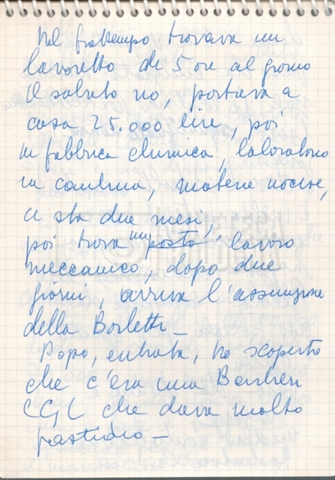 Nel frattempo trovava un
lavoretto di 5 ore al giorno
il sabato no, portava a
casa 25.000 lire, poi
in fabbrica chimica, laboratorio
in cantina, materie nocive,
ci sta due mesi,
poi trova un posto, lavoro
meccanico, dopo due
giorni, arriva l'assunzione
della Borletti -
Dopo, entrata, ho scoperto
che c'era una
CGL che dava molto
fastidio -